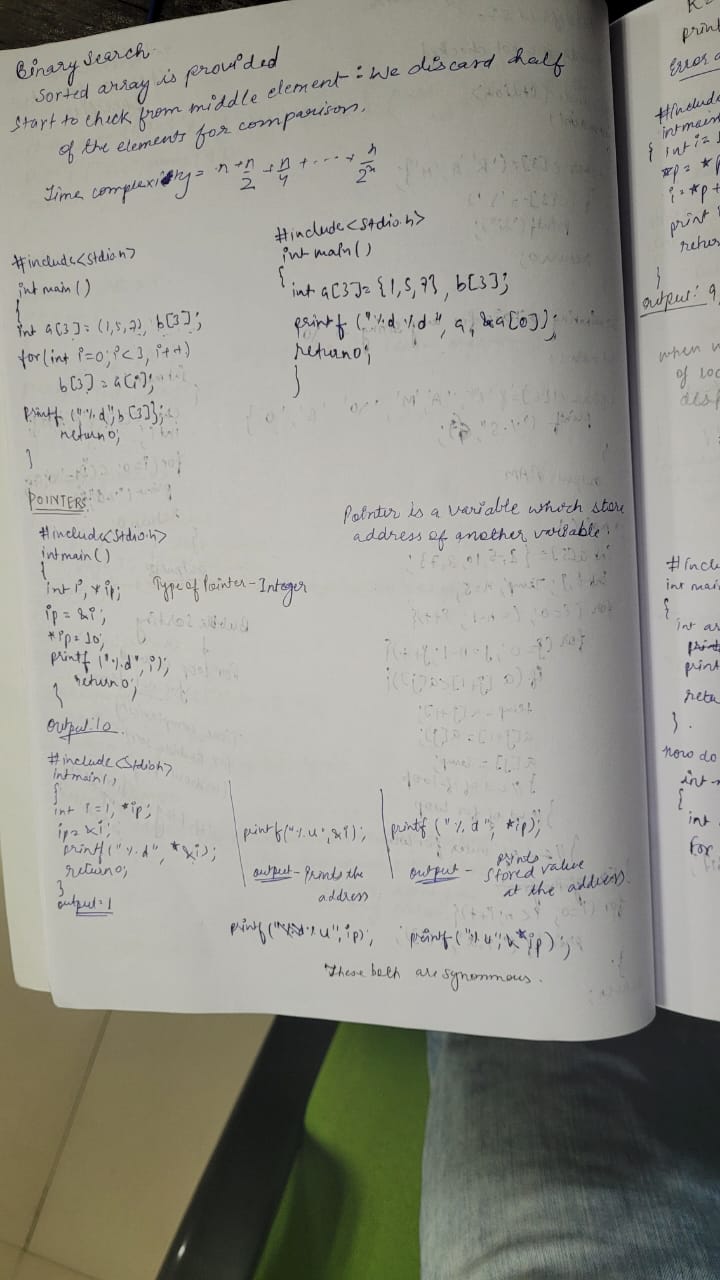 Binary Search
Sorted array is provided
Start to check from middle element : We discard half
of the elements for comparison.
Time complexity = n + n/2 + n/4 + ... + n/2^n
#include<stdio.h>
int main()
{
int a[3]= (1,5,7), b[3];
for(int i=0; i<3, i++)
b[3] = a[i];
printf ("%d", b[3]);
return 0;
}
#include<stdio.h>
int main()
{
int a[3]= {1,5,7}, b[3];
printf ("%d %d", a, &a[0]);
return 0;
}
POINTERS
Pointer is a variable which store
address of another variable.
#include<stdio.h>
int main()
{
int i, *ip; Type of Pointer - Integer
ip = &i;
*ip = 10;
printf ("%d", i);
return 0;
}
output: 10
#include<stdio.h>
int main()
{
int i=1, *ip;
ip = &i;
printf("%d", *&i);
return 0;
}
output = 1
printf("%u", &i);
output - Prints the
address
printf ("%d", *ip);
output - prints
stored value
at the address.
printf("%u", ip); printf("%u", &*ip);
These both are synonmous.
prin
Error
#include
int main
{ int i=
*p = *p
i = *p +
print
retur
}
output: 9,
when
of loc
disp
#incl
int mai
{
int ar
print
print
retu
}.
How do
int
{
int
for